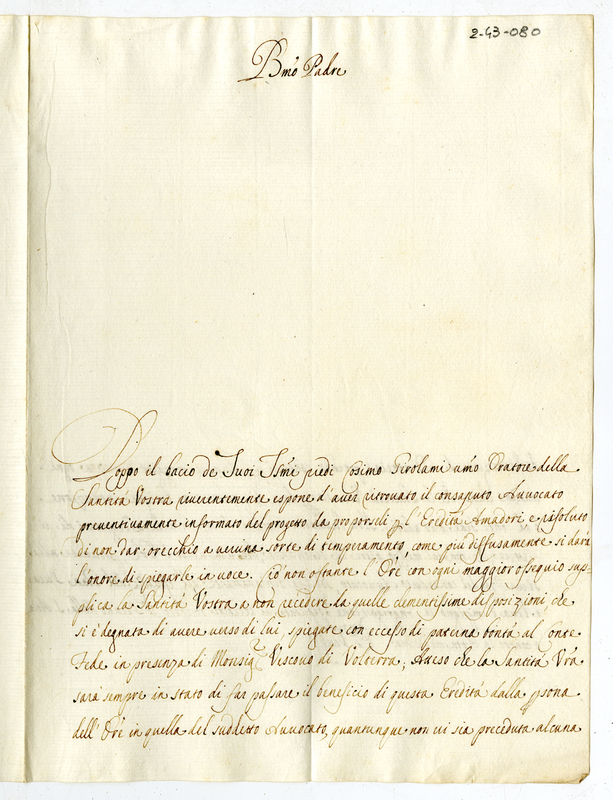 2-43-080
Bmo Padre
Doppo il bacio de Suoi Ssmi piedi Cosimo Girolami umo Oratore della
Santità Vostra riverentemente espone d'aver ritrovato il consaputo Avvocato
preventivamente informato del progetto da proporseli p l'Eredità Amadori, e risoluto
di non dar orecchio a veruna sorte di temperamento, come più diffusamente si darà
l'onore di spiegarle in voce. Ciò non ostante l'Ore con ogni maggior ossequio sup=
plica la Santità Vostra a non recedere da quelle clementissime disposizioni, che
si è degnata di avere verso di lui, spiegate con eccesso di paterna bontà al Conte
Fede in presenza di Monsigr Vescovo di Volterra; Atteso che la Santità Vra
sarà sempre in stato di far passare il beneficio di questa Eredità dalla psona
dell'Ore in quella del suddetto Avvocato, quantunque non vi sia preceduta alcuna